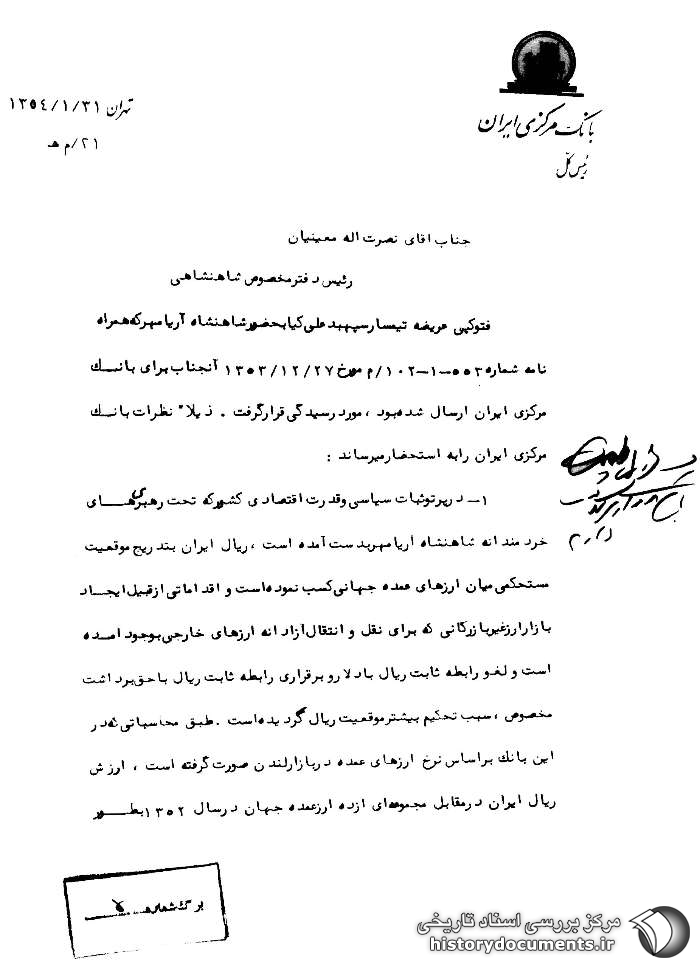 بانک مرکزی ایران
رئیس کل
تهران ۱۳۵٤/۱/۳۱
۲۱/م هـ
جناب اقای نصرت اله معینیان
رئیس دفترمخصوص شاهنشاهی
فتوکپی عریضه تیمسارسپهبدعلی کیابحضورشاهنشاه آریامهرکه همراه
نامه شماره ۵۵۳-۱-۱۰۲/م مورخ ۱۳۵۳/۱۲/۲۷ آنجناب برای بانـک
مرکزی ایران ارسال شده‌بود ، مورد رسیدگی قرارگرفت . ذیلا" نظرات بانـک
مرکزی ایران رابه استحضارمیرساند :
۱- درپرتوثبات سیاسی وقدرت اقتصادی کشورکه تحت رهبری‌هـــای
خردمندانه شاهنشاه آریامهربدست آمده است ، ریال ایران بتدریج موقعیت
مستحکمی‌میان ارزهای عمده جهانی‌کسب نموده‌است و اقداماتی ازقبیل ایجـاد
بازارارزغیربازرگانی که برای نقل و انتقال آزادانه ارزهای خارجی‌بوجود امـده
است و لغو رابطه ثابت ریال بادلارو برقراری رابطه ثابت ریال باحق‌برداشت
مخصوص ، سبب تحکیم بیشترموقعیت ریال گردیده‌است . طبق محاسباتی که‌در
این بانک براساس نرخ ارزهای عمده دربازارلندن صورت‌گرفته است ، ارزش
ریال ایران درمقابل مجموعه‌ای ازده ارزعمده جهان درسال ۱۳۵۲ بطـــور
دارم
برگ شماره
مرکز بررسی اسناد تاریخی
historydocuments.ir